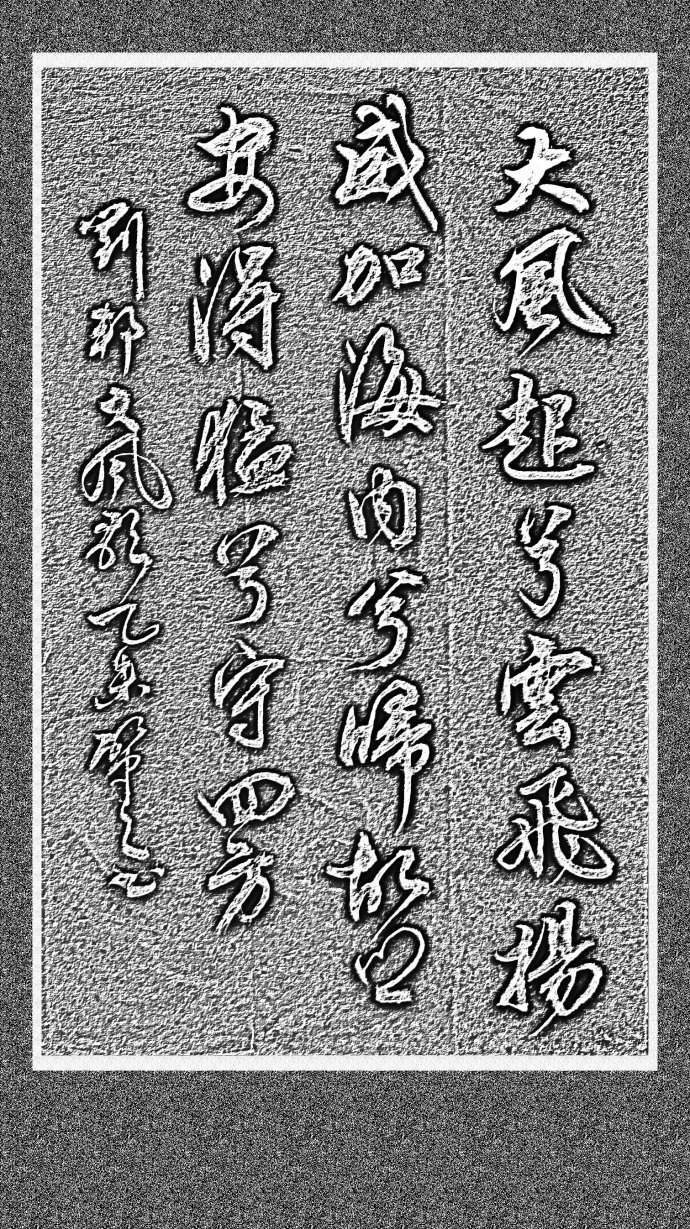 大風起兮雲飛揚
威加海内兮歸故鄉
安得猛兮守四方
劉邦大風歌乙未